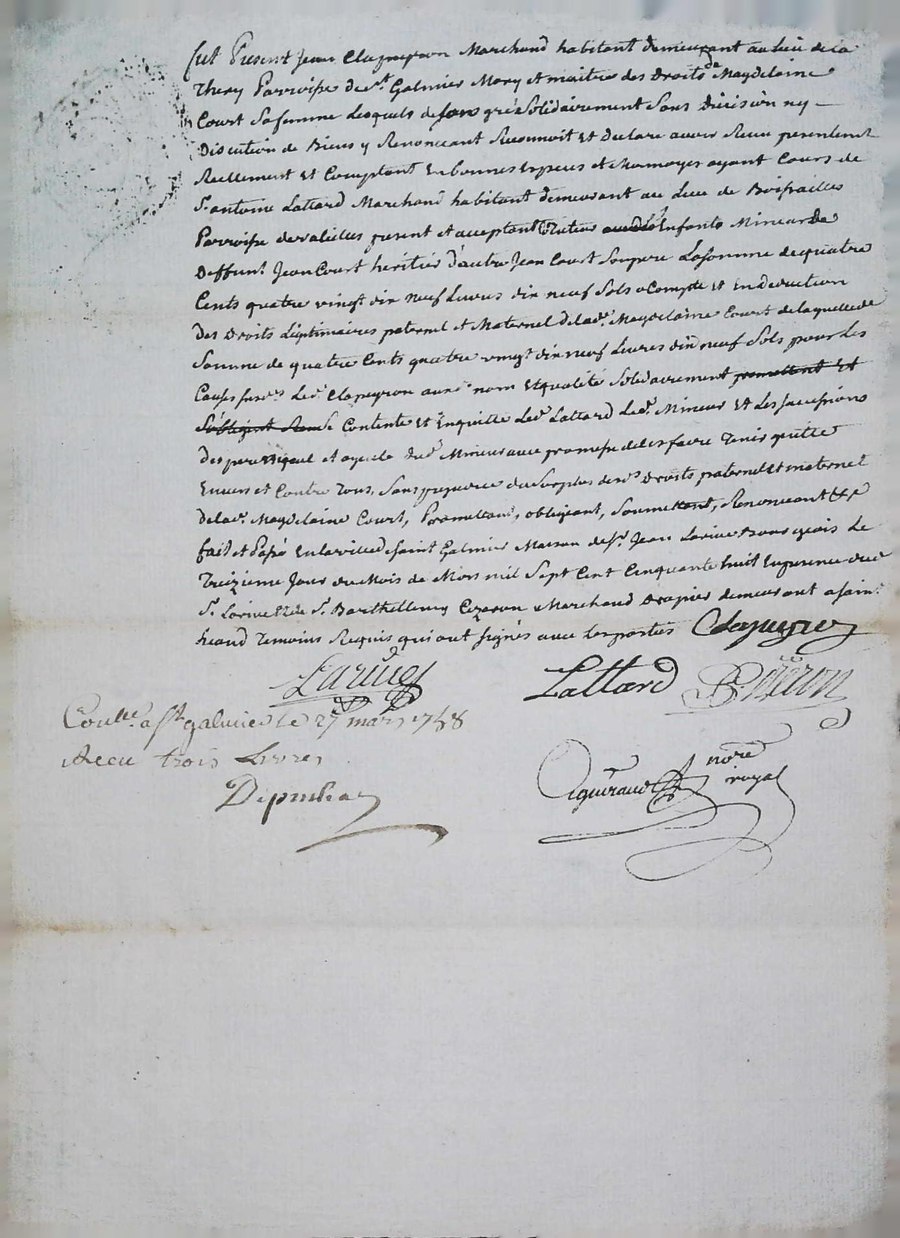 fut Present Jean Clapeyron Marchand habitant demeurant au lieu de la
Thery Parroisse de St. Galmier Mary et maitre des Droits de Magdelaine
Court sa femme Lesquels de leurs gré Solidairement Sans Division ny
Discution de Biens y Renonceant Reconnoit Et declare avoir Receu presentement
Reellement Et Comptant En bonnes Especes et Monnoyes ayant Cours de
Sr. antoine Lattard Marchand habitant demeurant au Lieu de Boisrailles
Parroisse de valeilles present et acceptant Tuteur Enfants Mineurs de
Deffunt Jean Court heritier d'autre Jean Court Son pere La somme de quatre
Cents quatre vingt dix neuf Livres dix neuf Sols a Compte Et En deduction
des Droits Légitimaires paternel et Maternel de lade. Magdelaine Court de laquelle de
Somme de quatre Cents quatre vingt dix neuf Livres dix neuf Sols pour Les
Causes Led. Clapeyron aux. nom Et qualité Solidairement promettent Et
S'obligent Contente Et Enquitte Led. Lattard Led. Mineur Et Les Successions
des pere et ayeule Dud. Mineur avec promesse de les faire Tenir quitte
Envers et Contre Tous, Sans prejudice du Surplus des Droits paternel et maternel
de lade. Magdelaine Court, Promettant, obligeant, Soumettant, Renonceant &c
fait et Passé En la ville de Saint Galmier Maison de Sr. Jean Larive Bourgeois Le
Treizieme Jour du Mois de Mars mil Sept Cent Cinquante huit En presence dud.
Sr. Larive Et de Sr. Barthellemy Marchand Drapier demeurant a Saint
heand Temoins Requis qui ont signés avec Les parties Clapeyron
Larive
Lattard
Conlle. a St. galmier le 27 mars 1758
Receu trois Livres
nore
royal